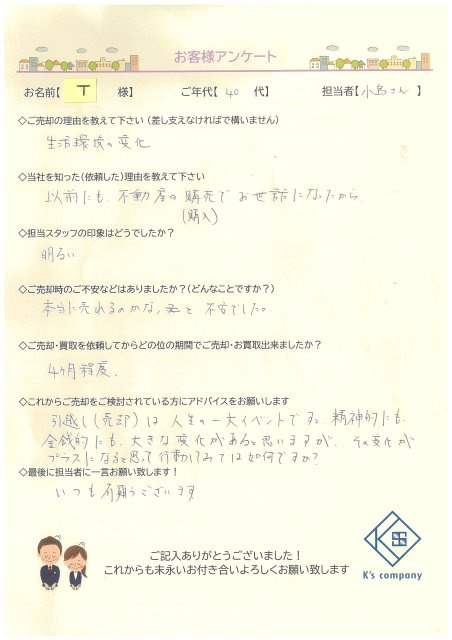 お客様アンケート
お名前【 T 様】 ご年代【 40 代】 担当者【小島さん】
◇ご売却の理由を教えて下さい（差し支えなければで構いません）
生活環境の変化
◇当社を知った（依頼した）理由を教えて下さい
以前にも、不動産の購売でお世話になったから
（購入）
◇担当スタッフの印象はどうでしたか？
明るい
◇ご売却時のご不安などはありましたか？（どんなことですか？）
本当に売れるのかな、と不安でした。
◇ご売却・買取を依頼してからどの位の期間でご売却・お買取出来ましたか？
4ヶ月程度、
◇これからご売却をご検討されている方にアドバイスをお願いします
引越し（売却）は人生の一大イベントです。精神的にも、
金銭的にも、大きな変化があると思いますが、その変化が
プラスになると思って行動してみては如何ですか？
◇最後に担当者に一言お願い致します！
いつも有難うございます
ご記入ありがとうございました！
これからも末永いお付き合いよろしくお願い致します
K's company